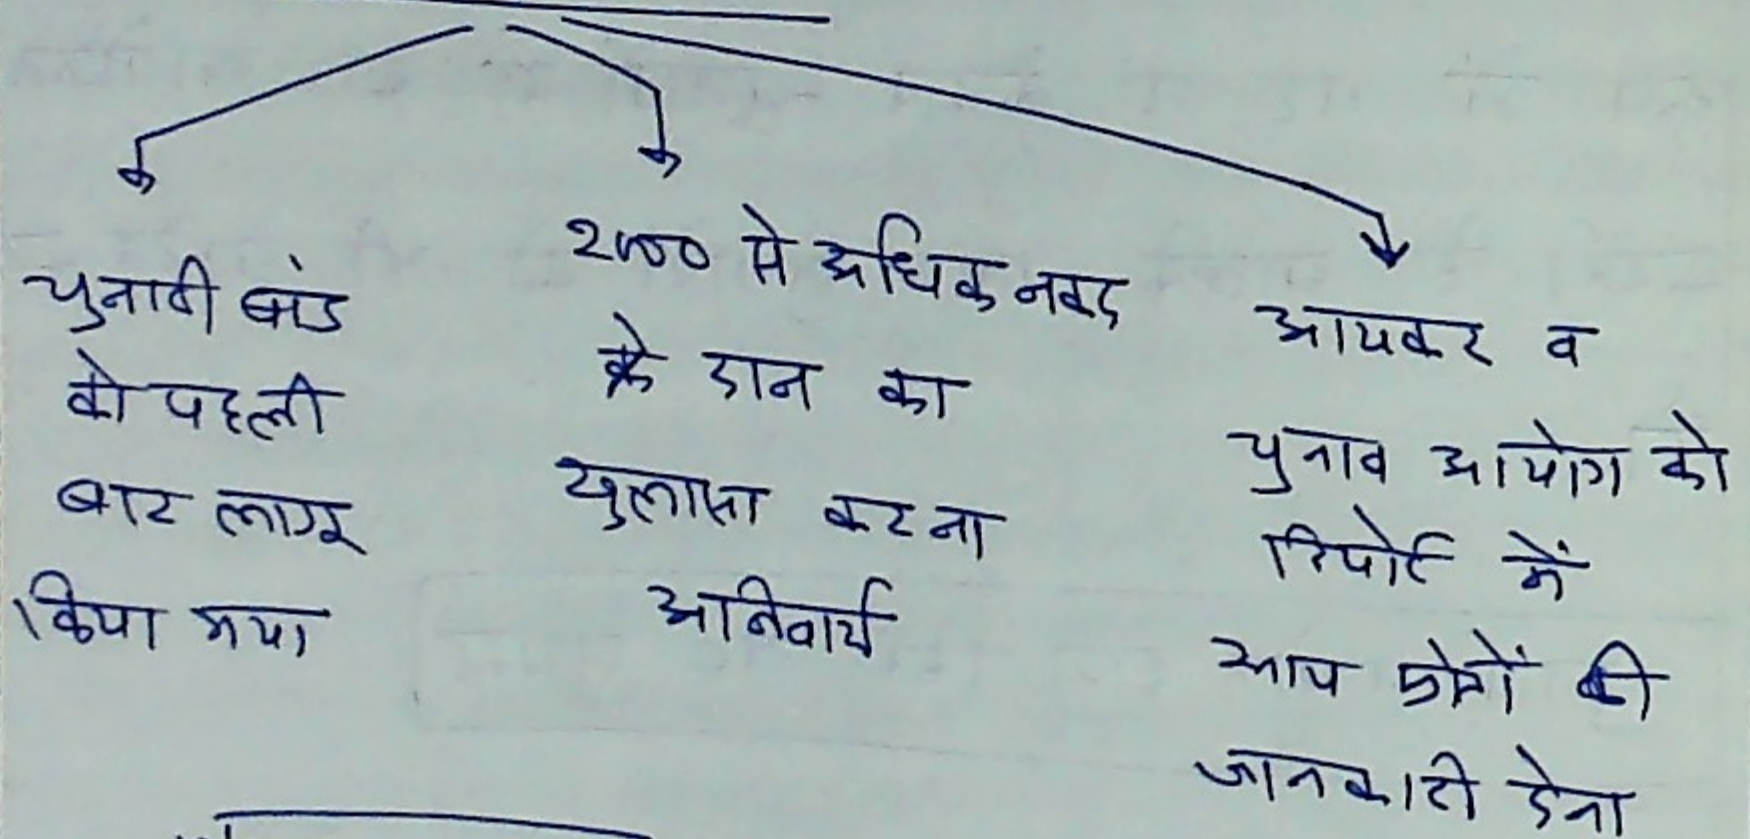 चुनावी बांड
को पहली
बार लागू
किया गया
2000 से अधिक नकद
के दान का
खुलासा करना
अनिवार्य
आयकर व
चुनाव आयोग को
रिपोर्ट में
आय स्रोतों की
जानकारी देना